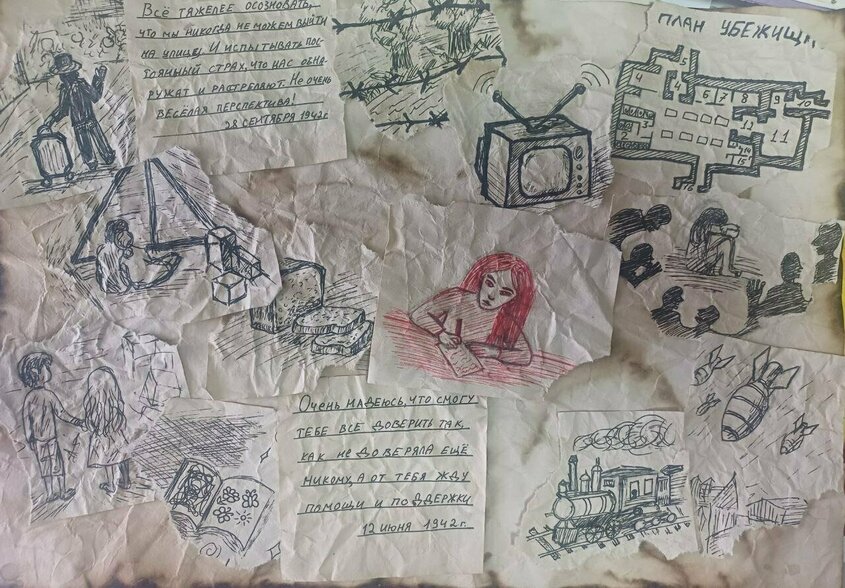 Всё тяжелее осозновать,
что мы никогда не можем выйти
на улицу. И испытывать пос-
тоянный страх, что нас обна-
ружат и растреляют. Не очень
весёлая перспектива!
28 сентября 1942г
ПЛАН УБЕЖИЩ
5
4 4 6 7 8 9 10
3 12 11
14
15
16
Очень надеюсь, что смогу
тебе всё доверить так,
как не доверяла ещё
никому, а от тебя жду
помощи и поддержки
12 июня 1942г.